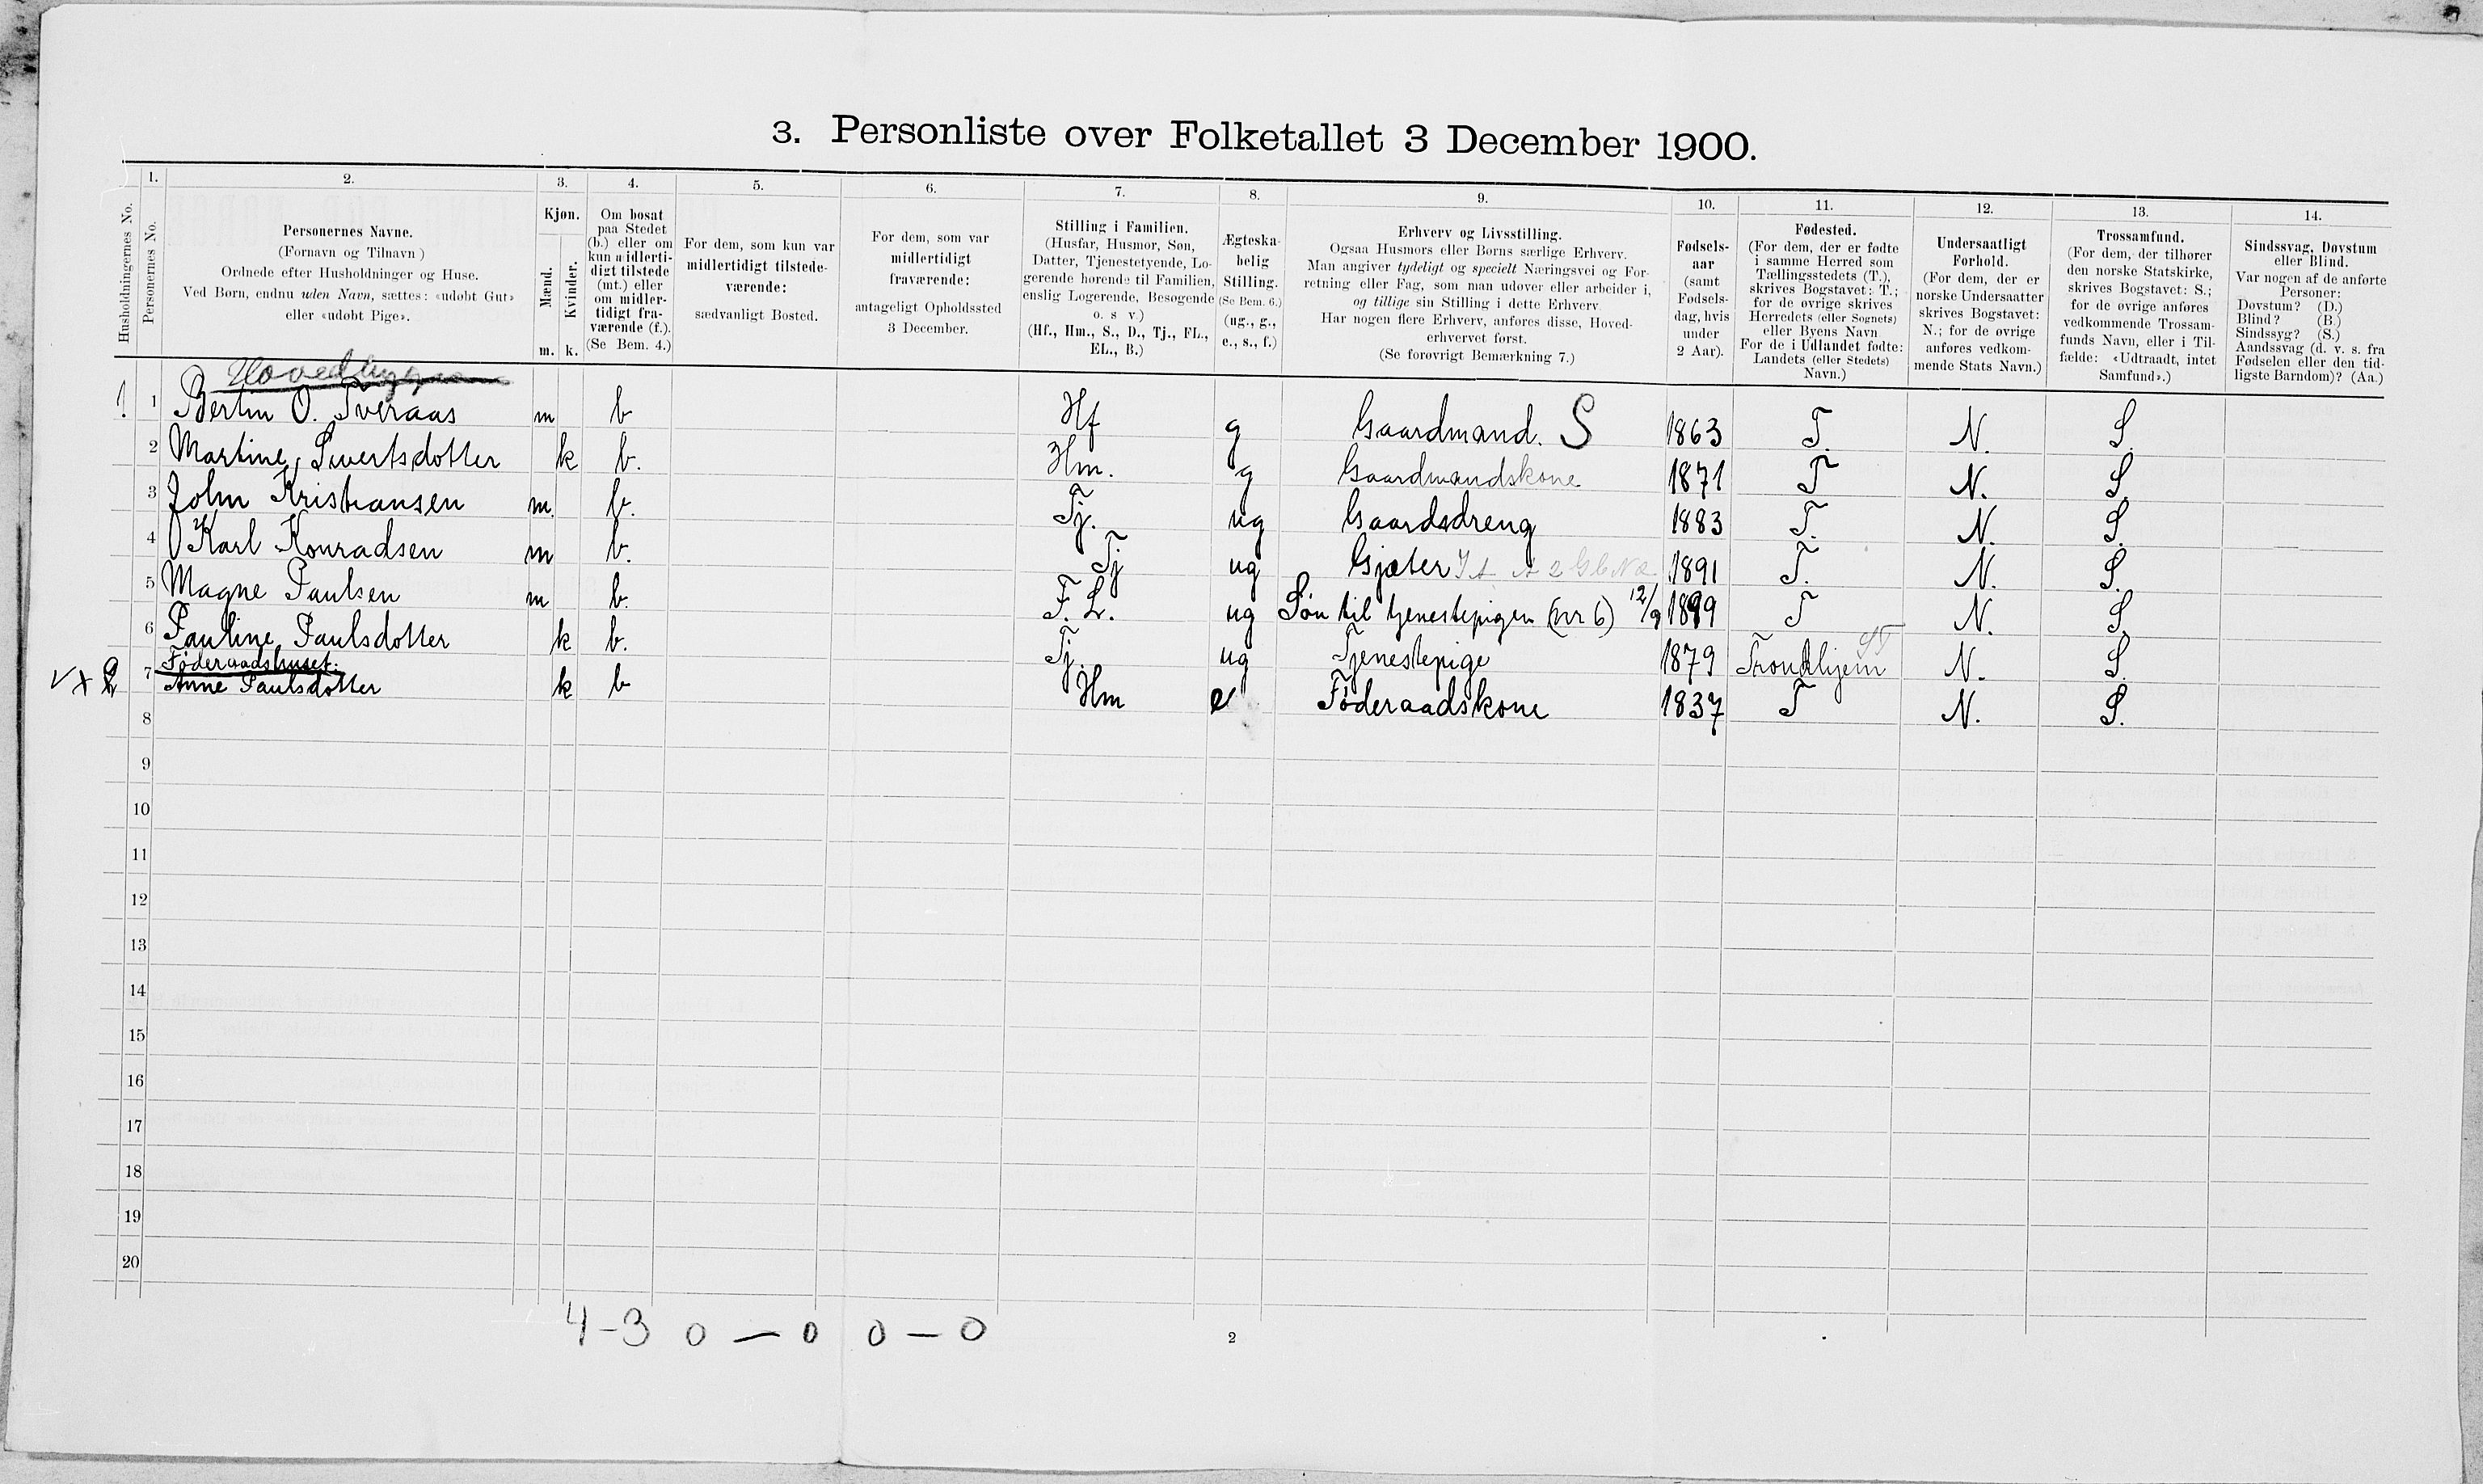 3. Personliste over Folketallet 3 December 1900.
Husholdningernes No.
1.
Personernes No.
2.
Personernes Navne.
(Fornavn og Tilnavn)
Ordnede efter Husholdninger og Huse.
Ved Børn, endnu uden Navn, sættes: «udøbt Gut»
eller «udøbt Pige».
3.
Kjøn.
Mænd.
Kvinder.
m. k.
4.
Om bosat
paa Stedet
(b.) eller om
kun midlerti-
digt tilstede
(mt.) eller
om midler-
tidigt fra-
værende (f.).
(Se Bem. 4.)
5.
For dem, som kun var
midlertidigt tilstede-
værende:
sædvanligt Bosted.
6.
For dem, som var
midlertidigt
fraværende:
antageligt Opholdssted
3 December.
7.
Stilling i Familien.
(Husfar, Husmor, Søn,
Datter, Tjenestetyende, Lo-
gerende hørende til Familien,
enslig Logerende, Besøgende
o. s v.)
(Hf., Hm., S., D., Tj., FL.,
EL., B.)
8.
Ægteska-
belig
Stilling.
(Se Bem. 6.)
(ug., g.,
e., s., f.)
9.
Erhverv og Livsstilling.
Ogsaa Husmors eller Børns særlige Erhverv.
Man angiver tydeligt og specielt Næringsvei og For-
retning eller Fag, som man udøver eller arbeider i,
og tillige sin Stilling i dette Erhverv.
Har nogen flere Erhverv, anføres disse, Hoved-
erhvervet først.
(Se forøvrigt Bemærkning 7.)
10.
Fødsels-
aar
(samt
Fødsels-
dag, hvis
under
2 Aar).
11.
Fødested.
(For dem, der er fødte
i samme Herred som
Tællingsstedets (T.),
skrives Bogstavet: T.;
for de øvrige skrives
Herredets (eller Sognets)
eller Byens Navn
For de i Udlandet fødte:
Landets (eller Stedets)
Navn.)
12.
Undersaatligt
Forhold.
(For dem, der er
norske Undersaatter
skrives Bogstavet:
N.; for de øvrige
anføres vedkom-
mende Stats Navn.)
13.
Trossamfund.
(For dem, der tilhører
den norske Statskirke,
skrives Bogstavet: S.;
for de øvrige anføres
vedkommende Trossam-
funds Navn, eller i Til-
fælde: «Udtraadt, intet
Samfund».)
14.
Sindssvag, Døvstum
eller Blind.
Var nogen af de anførte
Personer:
Døvstum? (D.)
Blind? (B.)
Sindssyg? (S.)
Aandssvag (d. v. s. fra
Fødselen eller den tid-
ligste Barndom)? (Aa.)
1 Bertin O. Tveraas m b Hf g Gaardmand. S 1863 T. N. S.
2 Martine Sivertsdotter k b. Hm. g Gaardmandskone 1871 T N. S.
3 John Kristiansen m. b. Tj. ug Gaardsdreng 1883 T. N. S.
4 Karl Konradsen m b. Tj ug Gjæter 1891 T. N. S.
5 Magne Paulsen m b. F. L. ug Søn til tjenestepigen (nr 6) 12/9 1899 T N. S.
6 Pauline Paulsdotter k b. Tj. ug Tjenestepige 1879 Trondhjem N. S.
Føderaadshuset:
2 7 Anne Paulsdotter k b Hm e Føderaadskone 1837 T N. S.
8
9
10
11
12
13
14
15
16
17
18
19
20
4-3 0 — 0 0 — 0
2